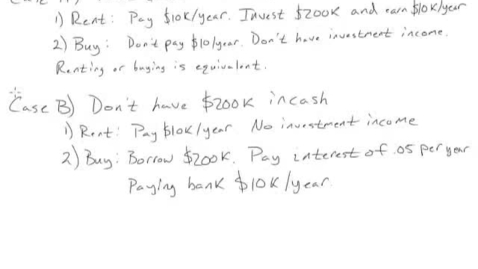 1) Rent: Pay $10K/year. Invest $200K and earn $10K/year
2) Buy: Don't pay $10/year. Don't have investment income.
Renting or buying is equivalent.
Case B) Don't have $200K in cash
1) Rent: Pay $10K/year No investment income
2) Buy: Borrow $200K. Pay interest of .05 per year
Paying bank $10K/year